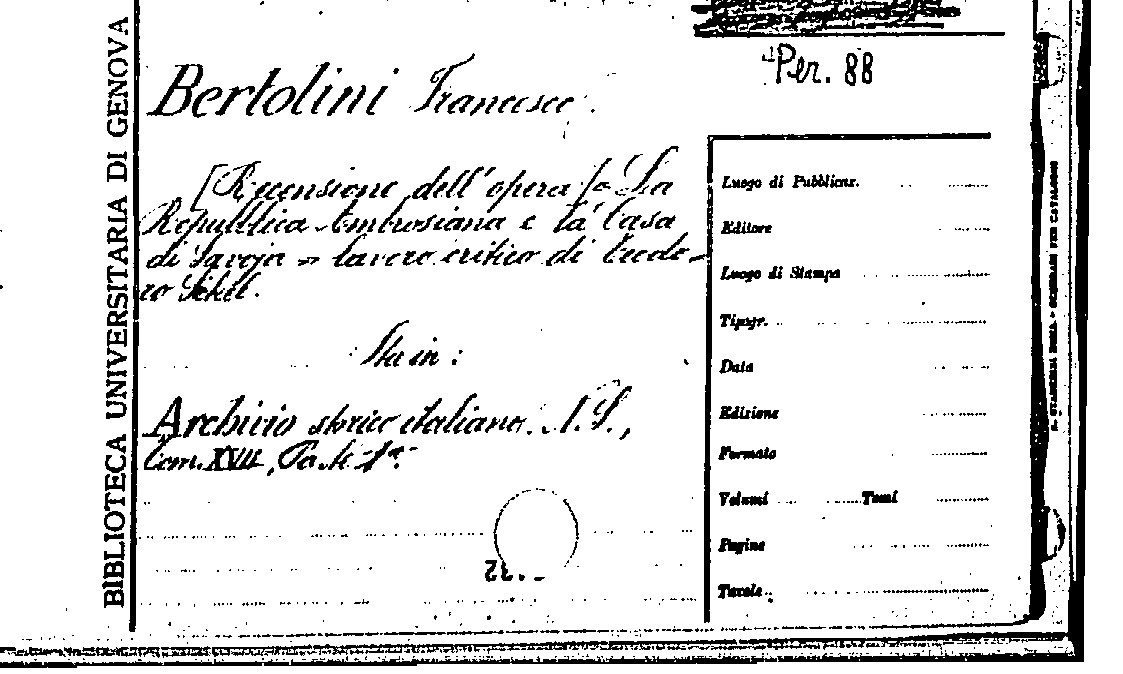 BIBLIOTECA UNIVERSITARIA DI GENOVA
Per. 88
Bertolini Francesco.
[Recensione dell'opera] La
Repubblica Ambrosiana e la Casa
di Savoja = lavoro critico di Teodo-
ro Sickel.
Sta in:
Archivio storico italiano. N.S.,
Tom. XVII, Parte 1ª.
Luogo di Pubblicaz.
Editore
Luogo di Stampa
Tipogr.
Data
Edizione
Formato
Volumi Tomi
Pagine
Tavole